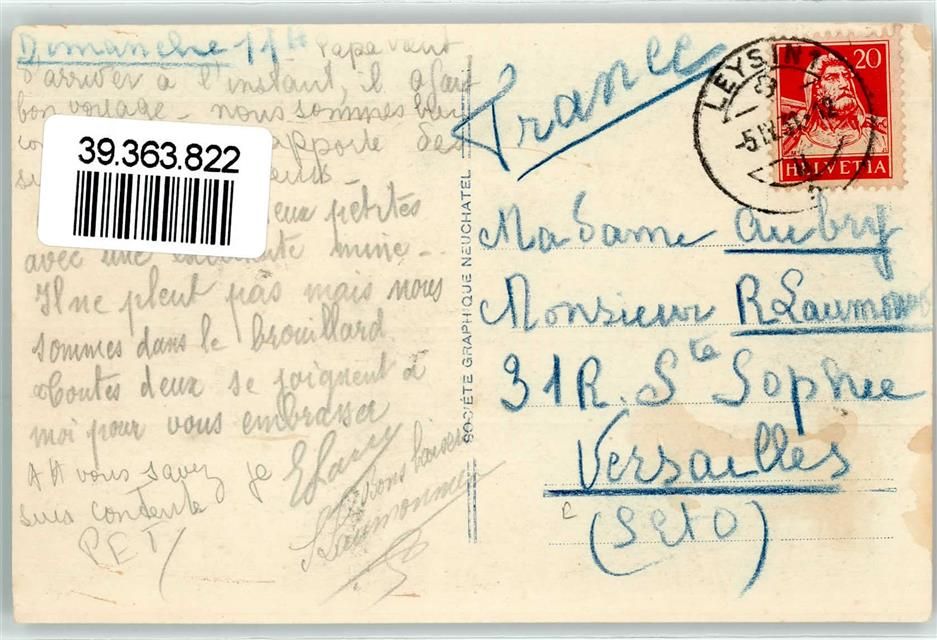 Dimanche 11h Papa vient
d'arriver à l'instant, il a fait
bon voyage - nous sommes bien
apporte des
eux petites
avec une mine -
Il ne pleut pas mais nous
sommes dans le brouillard
toutes deux se joignent à
moi pour vous embrasser
AA vous savez je
suis contente
PET
vous baiser
39.363.822
SOCIÉTÉ GRAPHIQUE NEUCHATEL
LEYSIN
20
HELVETIA
France
Madame Aubry
Monsieur R Laumon
31 R. Ste Sophie
Versailles
(S et O)